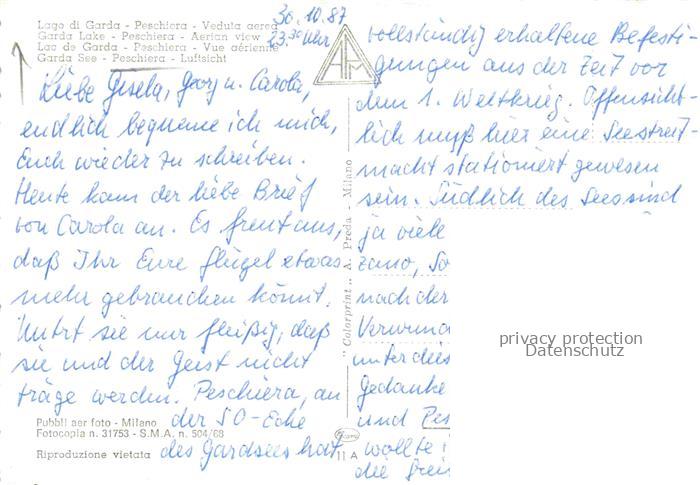 Lago di Garda - Peschiera - Veduta aerea
Garda Lake - Peschiera - Aerian view
Lac de Garda - Peschiera - Vue aérienne
Garda See - Peschiera - Luftsicht
30.10.87
23.30 Uhr
Liebe Gisela, Georg u. Carola,
endlich bequeme ich mich,
Euch wieder zu schreiben.
Heute kam der liebe Brief
von Carola an. Es freut uns,
daß Ihr Eure Flügel etwas
mehr gebrauchen könnt.
Nutzt sie nur fleißig, daß
sie und der Geist nicht
träge werden. Peschiera, an
der SO-Ecke
des Gardsees hat
Pubbli aer foto - Milano
Fotocopia n. 31753 - S.M.A. n. 504/68
Riproduzione vietata
11 A
"Colorprint" A. Preda - Milano
vollständig erhaltene Befesti-
gungen aus der Zeit vor
dem 1. Weltkrieg. Offensicht-
lich muß hier eine Seestreit-
macht stationiert gewesen
sein. Südlich des Sees sind
ja viele
zano, So
nach der
Verwund
unter dies
Gedanke
und Pes
wollte i
die
privacy protection
Datenschutz